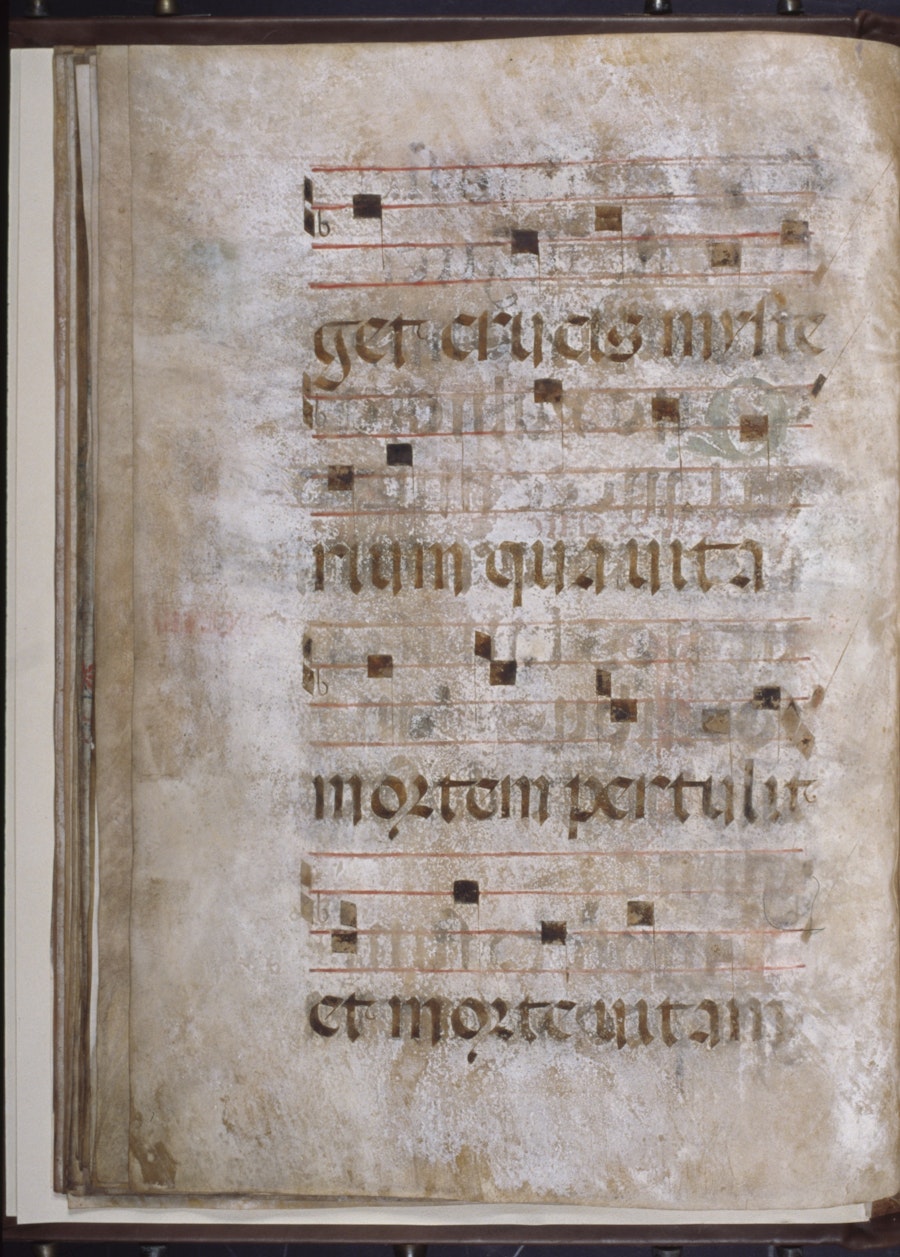 get crucis myste
rium qua uita
mortem pertulit
et morte uitam